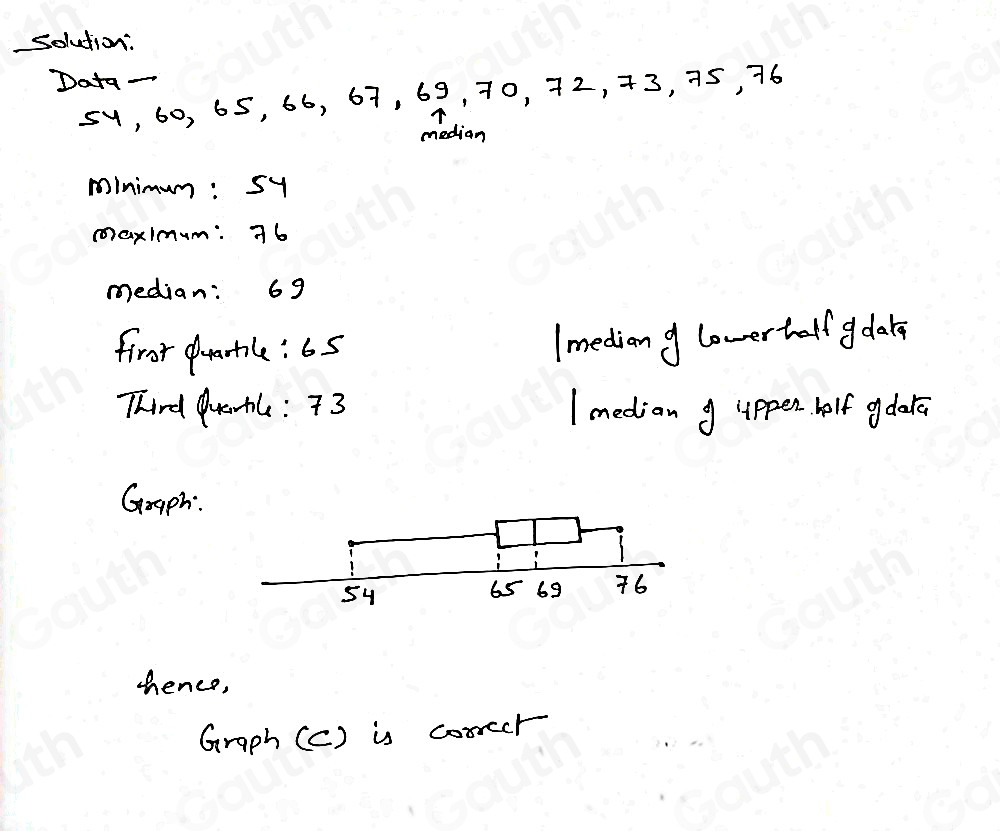 Solution:
Data —
54, 60, 65, 66, 67, 69, 70, 72, 73, 75, 76
↑
median
minimum: 54
maximum: 76
median: 69
first quartile: 65 | median of lower half of data
Third Quartile: 73 | median of upper half of data
Graph:
54 65 69 76
hence,
Graph (C) is correct